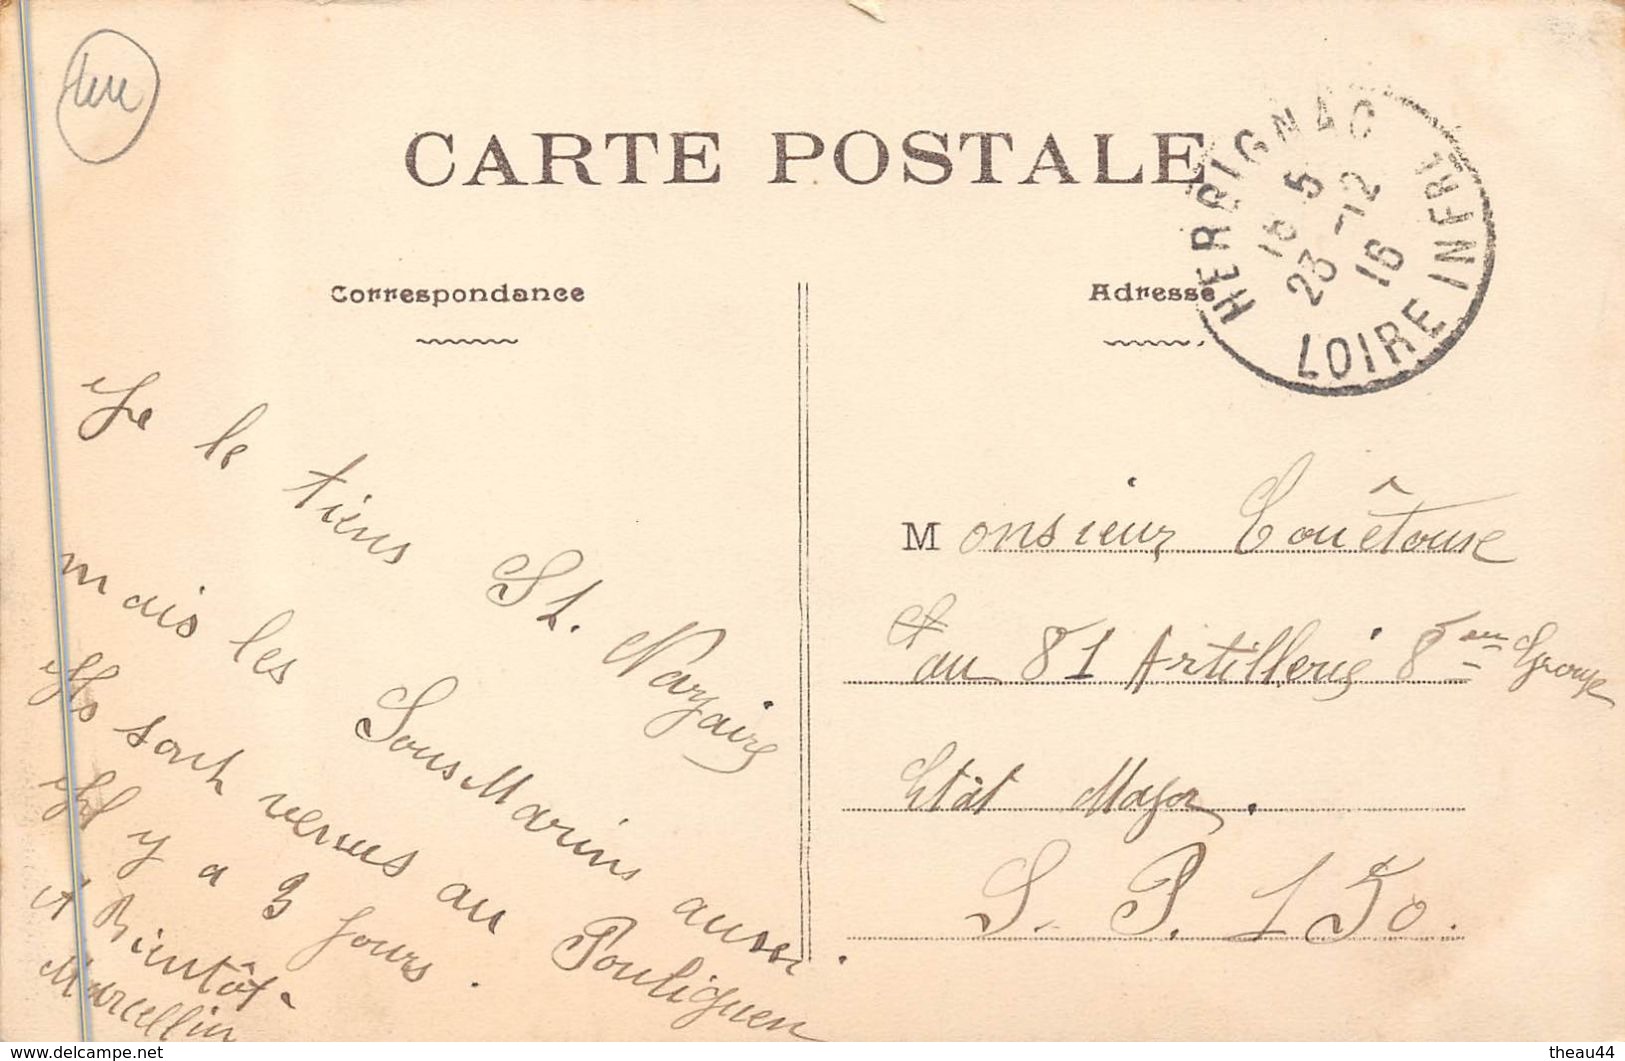 CARTE POSTALE
HERBIGNAC
18 5
23 -12
16
LOIRE INFRE
Correspondance
Adresse
Je le tiens St. Nazaire
mais les Sous Marins aussi.
Ils sont venus au Pouliguen
Il y a 3 jours.
A Bientôt
Marcellin
Monsieur Couëtouse
au 81 Artillerie 8eme Groupe
Etât Major.
S. P. 150.
theau44